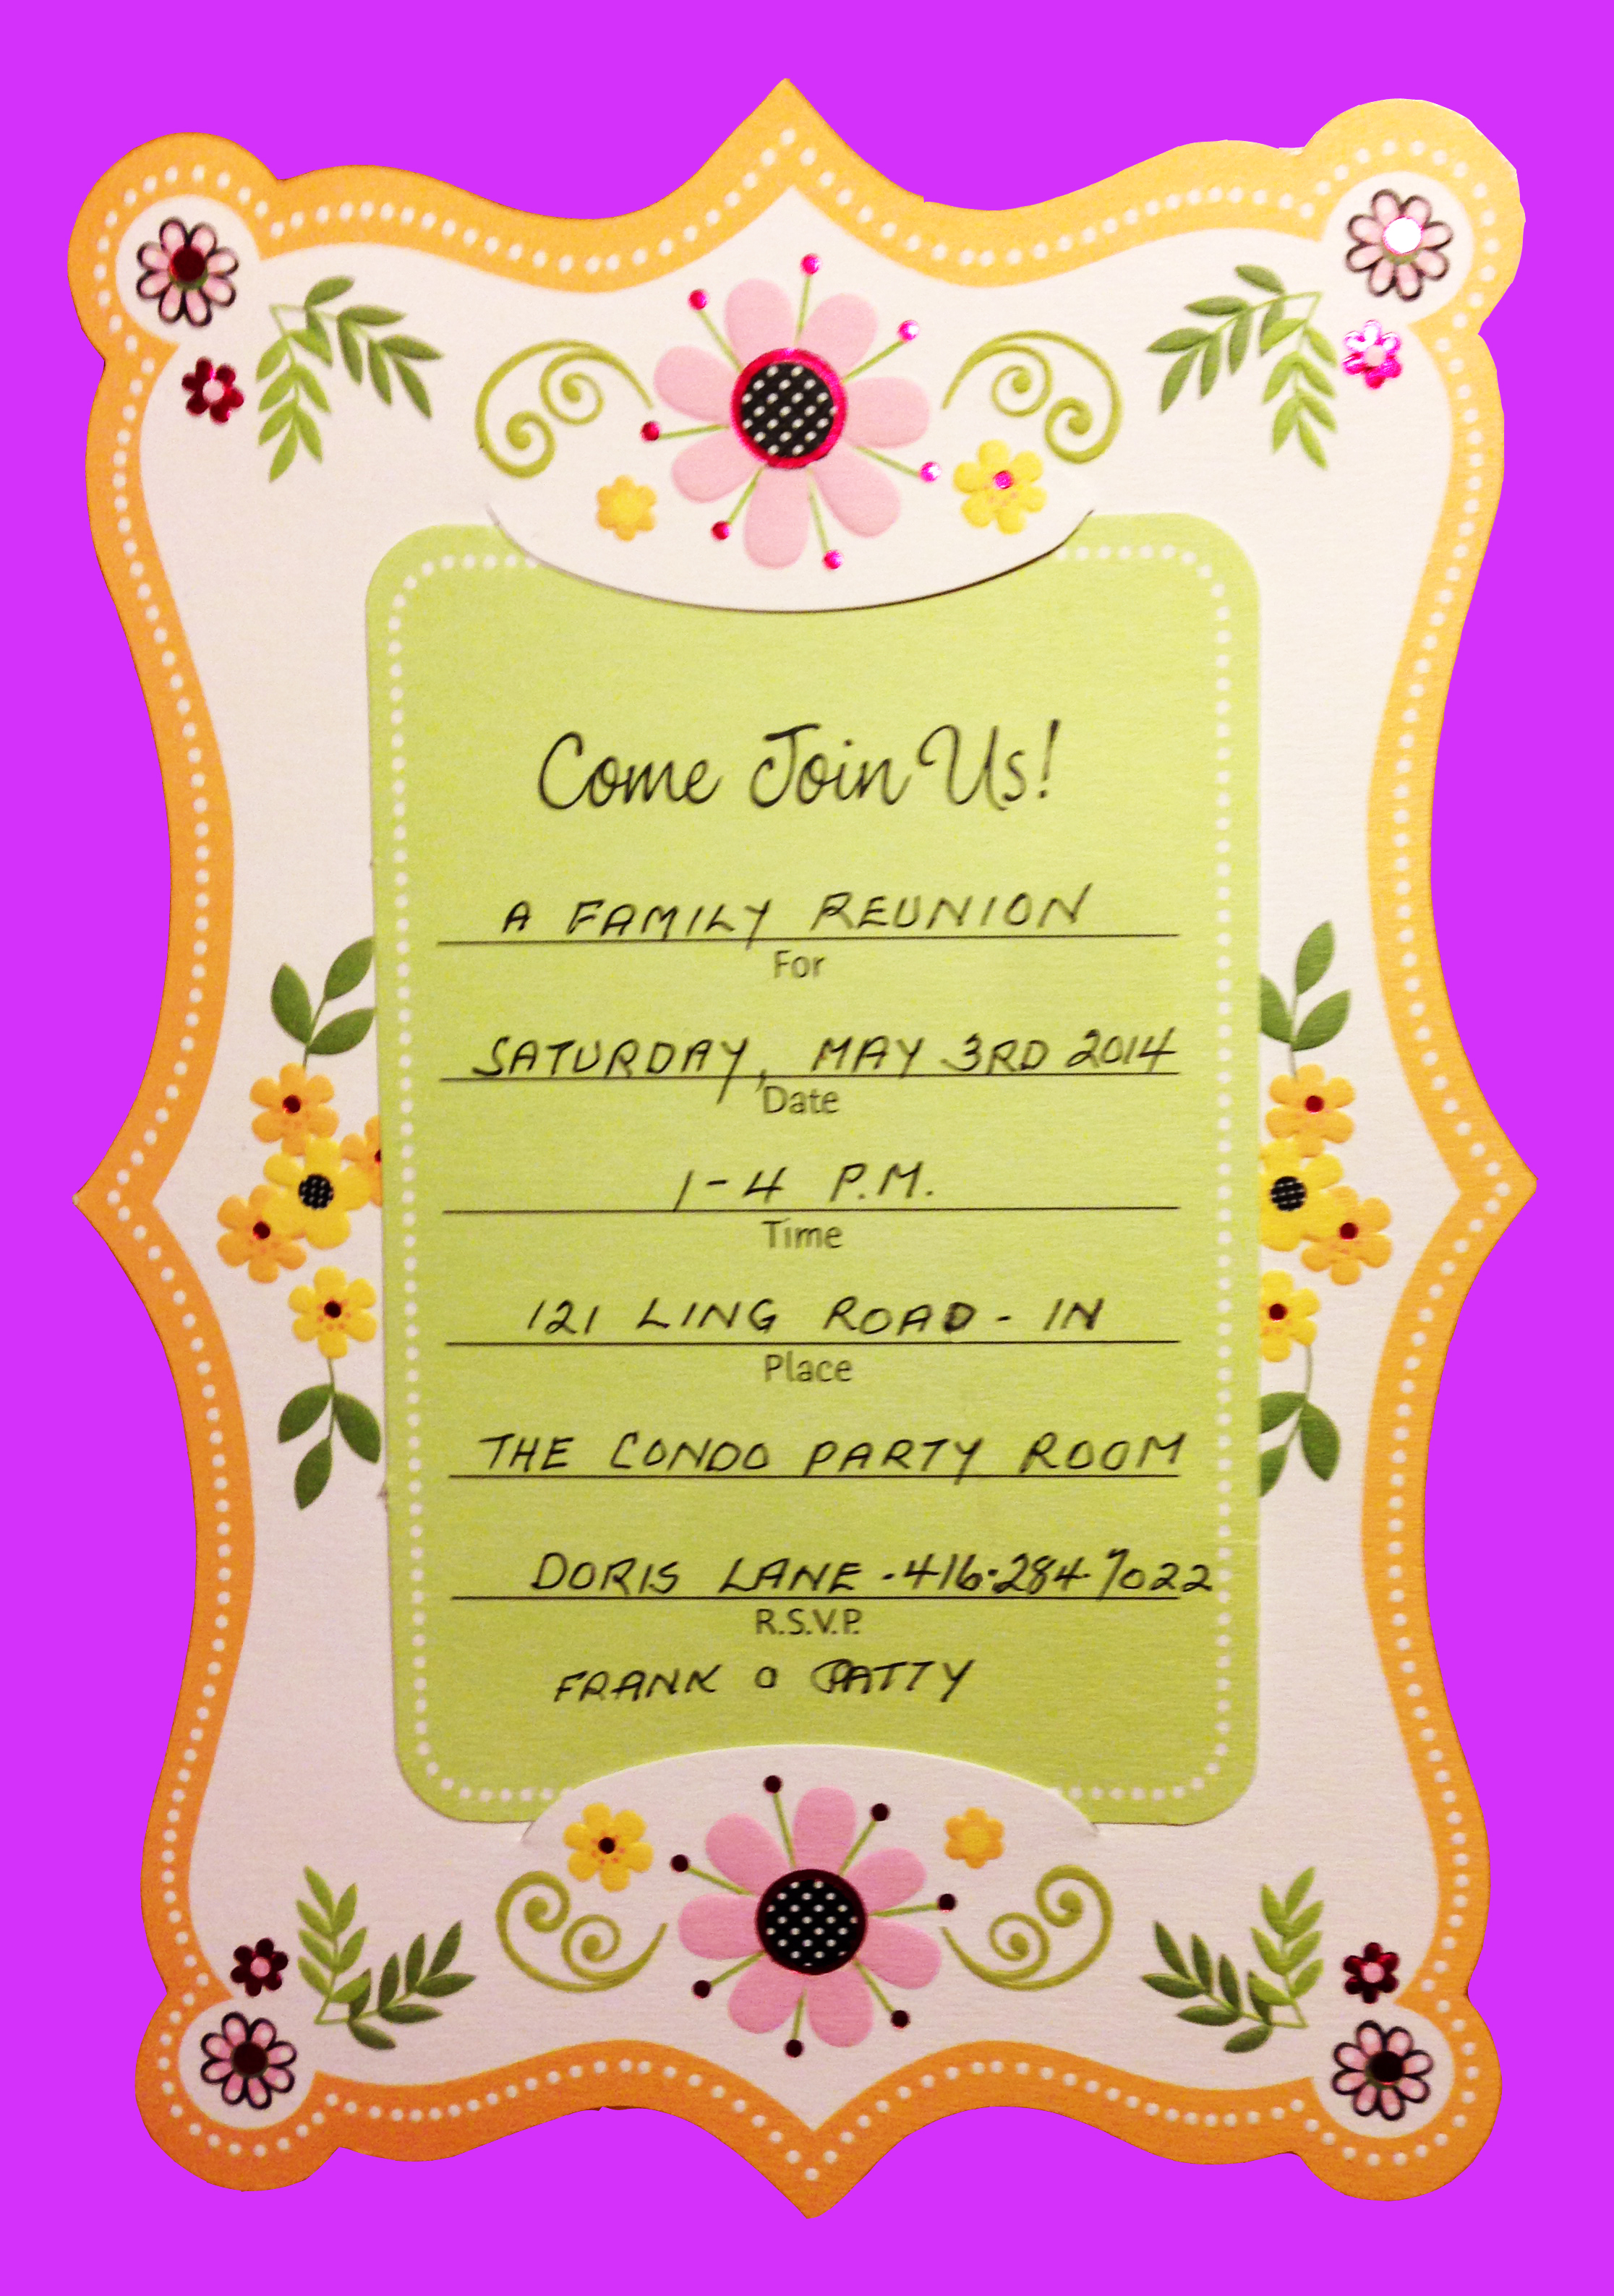 Come Join Us!
A FAMILY REUNION
For
SATURDAY, MAY 3RD 2014
Date
1-4 P.M.
Time
121 LING ROAD - IN
Place
THE CONDO PARTY ROOM
DORIS LANE - 416-284-7022
R.S.V.P.
FRANK O PATTY